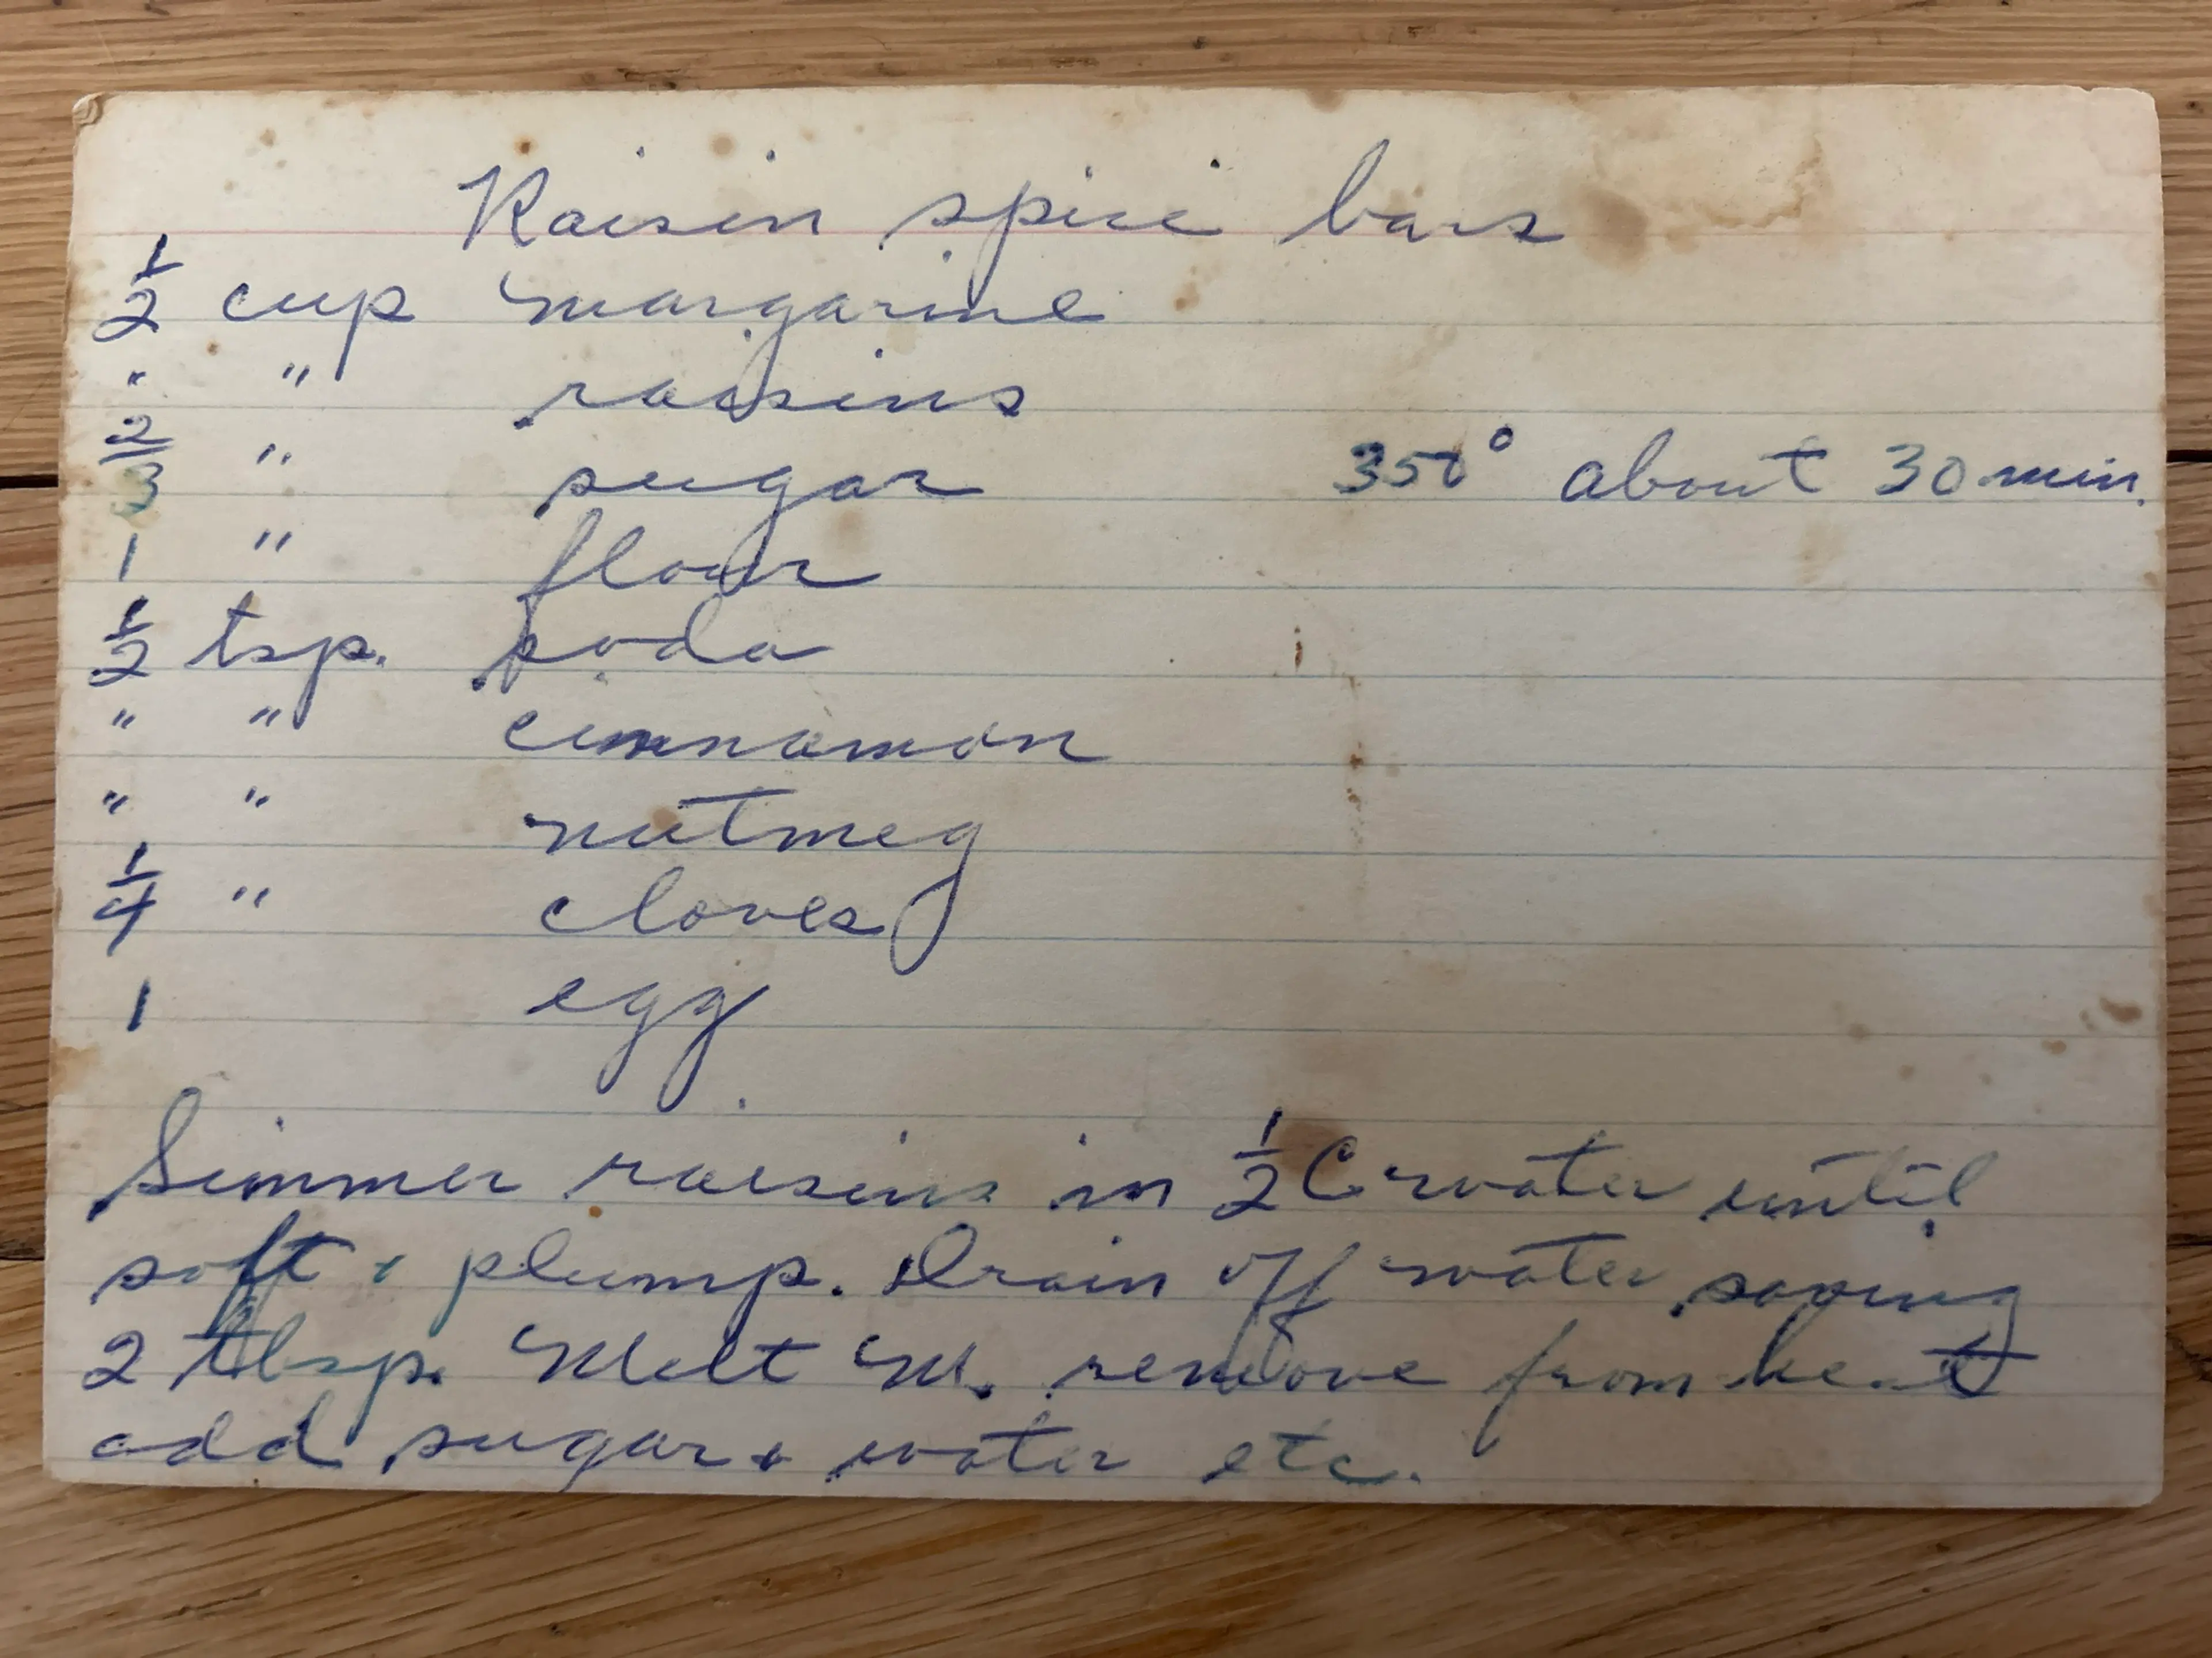 Raisin spice bars
1/2 cup margarine
" " raisins
2/3 " sugar 350° about 30 min.
1 " flour
1/2 tsp. soda
" " cinnamon
" " nutmeg
1/4 " cloves
1 egg
Simmer raisins in 1/2 C water until
soft & plump. Drain off water saving
2 tbsp. Melt M. remove from heat
add sugar & water etc.